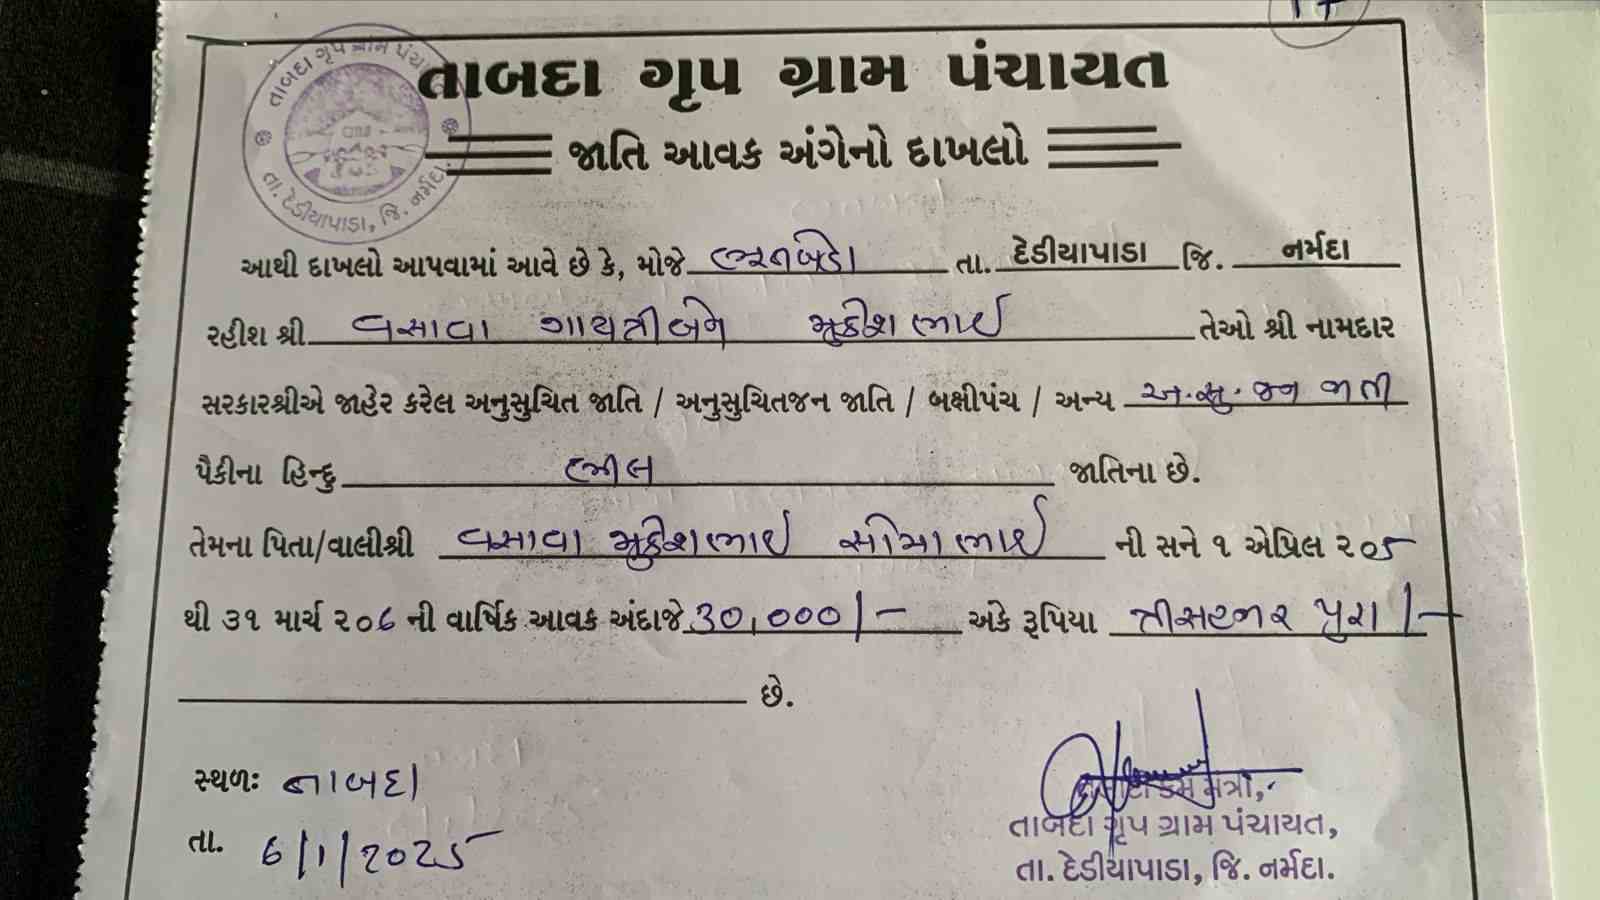 તાબદા ગૃપ ગ્રામ પંચાયત
જાતિ આવક અંગેનો દાખલો
તાબદા ગૃપ ગ્રામ પંચાયત
તા. દેડીયાપાડા, જિ. નર્મદા
આથી દાખલો આપવામાં આવે છે કે, મોજે તા. દેડીયાપાડા જિ. નર્મદા
રહીશ શ્રી વસાવા ગાયત્રીબેન મુકેશભાઈ તેઓ શ્રી નામદાર
સરકારશ્રીએ જાહેર કરેલ અનુસુચિત જાતિ / અનુસુચિતજન જાતિ / બક્ષીપંચ / અન્ય અ.સુ.જન જાતી
પૈકીના હિન્દુ ભીલ જાતિના છે.
તેમના પિતા/વાલીશ્રી વસાવા મુકેશભાઈ સોમાભાઈ ની સને ૧ એપ્રિલ ૨૦5
થી ૩૧ માર્ચ ૨૦6 ની વાર્ષિક આવક અંદાજે 30,000/- અંકે રૂપિયા ત્રીસહજાર પુરા/-
છે.
સ્થળઃ તાબદા
તા. 6/1/2025
મંત્રી,
તાબદા ગૃપ ગ્રામ પંચાયત,
તા. દેડીયાપાડા, જિ. નર્મદા.